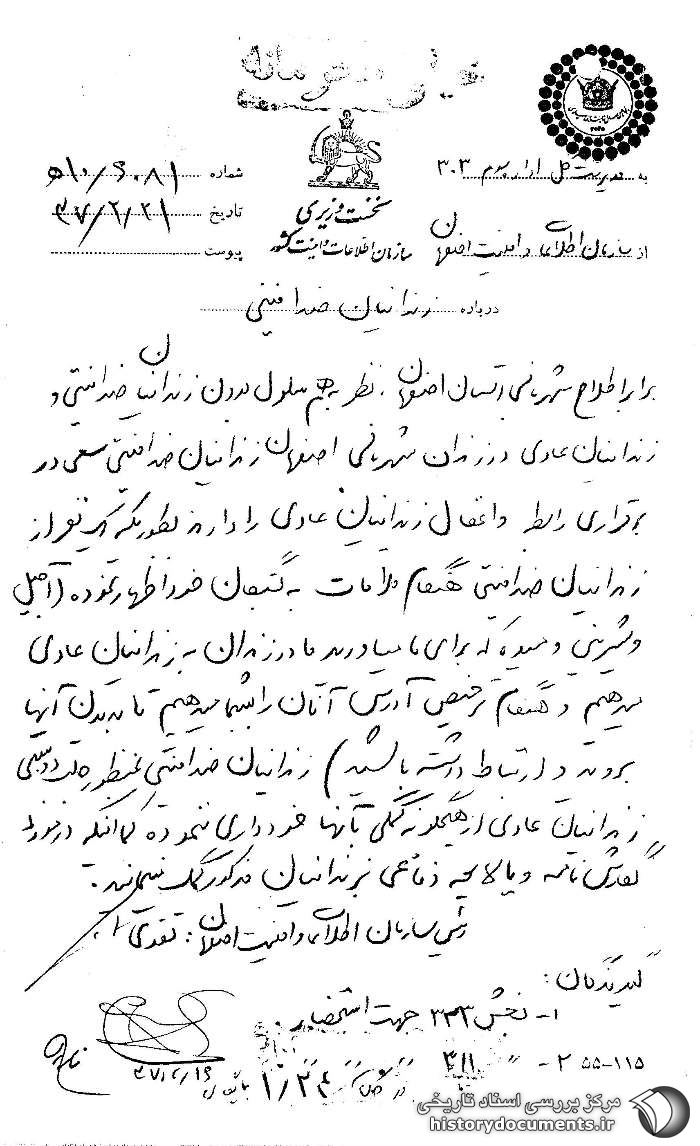 خیلی محرمانه
به مدیریت کل اداره سوم ۳۰۳
شماره ۵۱۰/۶۰۸۱
از سازمان اطلاعات و امنیت اصفهان
نخست وزیری
تاریخ ۳۷/۲/۲۱
سازمان اطلاعات و امنیت کشور
پیوست
درباره زندانیان ضد امنیتی
برابر اطلاع شهربانی استان اصفهان، نظر به هم سلول بودن زندانیان ضد امنیتی و
زندانیان عادی در زندان شهربانی اصفهان زندانیان ضد امنیتی سعی در
برقراری رابطه و اغفال زندانیان عادی را دارند بطوریکه یک نفر از
زندانیان ضد امنیتی هنگام ملاقات به بستگان خود اظهار نموده (آجیل
و شیرینی و میوه که برای ما میاورید ما در زندان به زندانیان عادی
میدهیم و هنگام ترخیص آدرس آنان را بشما میدهیم تا بدیدن آنها
بروید و ارتباط داشته باشید) زندانیان ضد امنیتی بمنظور جلب دوستی
زندانیان عادی از هیچگونه کمکی بآنها خودداری ننموده کما اینکه در مورد
نامه و یا لایحه دفاعی بزندانیان مذکور کمک مینمایند.
رئیس سازمان اطلاعات و امنیت اصفهان: تقوی
گیرندگان:
۱- بخش ۳۳۳ جهت استحضار.
۲- " ۳۱۱ " "
۵۵-۱۱۵
۳۷/۲/۱۹
۱/۳۴
مرکز بررسی اسناد تاریخی
historydocuments.ir